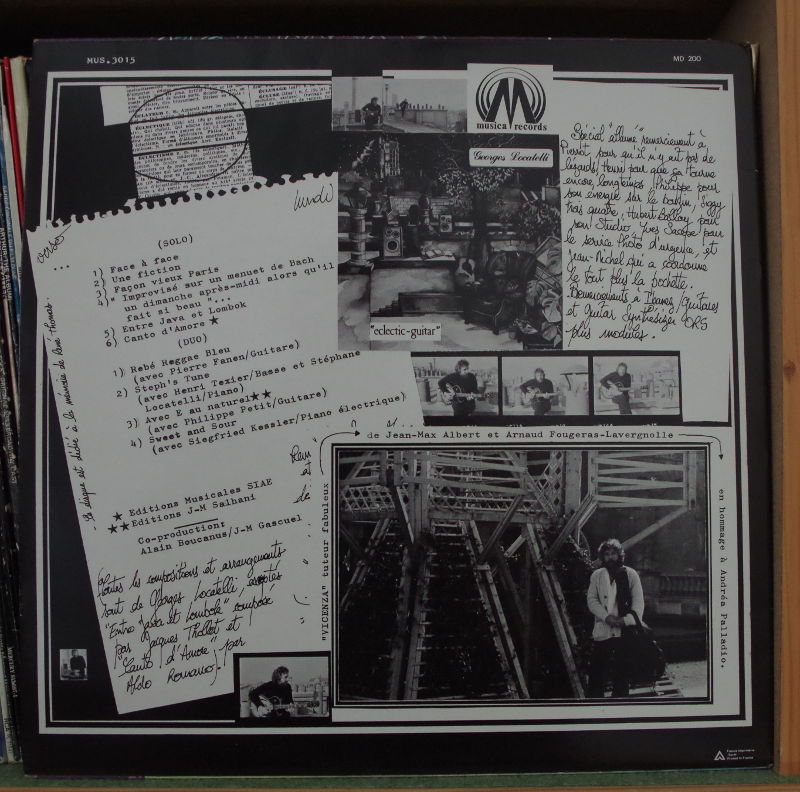 MUS.3015
MD 200
ÉCLECTIQUE
ÉCLECTISME
musica records
Georges Locatelli
"eclectic-guitar"
lundi
verso
...
(SOLO)
1) Face à face
2) Une fiction
3) Façon vieux Paris
4) " Improvisé sur un menuet de Bach
un dimanche après-midi alors qu'il
fait si beau "...
5) Entre Java et Lombok
6) Canto d'Amore ★
(DUO)
1) Rebé Reggae Bleu
(avec Pierre Fanen/Guitare)
2) Steph's Tune
(avec Henri Texier/Basse et Stéphane
Locatelli/Piano)
3) Avec E au naturel★★
(avec Philippe Petit/Guitare)
4) Sweet and Sour
(avec Siegfried Kessler/Piano électrique)
★ Editions Musicales SIAE
★★Editions J-M Salhani
Co-production:
Alain Boucanus/J-M Gascuel
Toutes les compositions et arrangements
sont de Georges Locatelli, exceptés
"Entre Java et Lombok" composé
par Jacques Thollot et
"Canto d'Amore" par
Aldo Romano.
Ce disque est dédié à la mémoire de René Thomas.
Spécial "album" remerciement à
Pierrot pour qu'il n'y ait pas de
lézards, Henri pour que ça tourne
encore longtemps, Philippe pour
son énergie sur le balcon, Siggy
, Hubert Ballay pour
son Studio, Yves Sacépe pour
le service Photo d'urgence, et
Jean-Michel qui a coordonné
le tout plus la pochette.
Remerciements à Ibanez/guitares
et Guitar Synthésizer ORS
plus modules.
de Jean-Max Albert et Arnaud Fougeras-Lavergnolle
"VICENZA" tuteur fabuleux
en hommage à Andréa Palladio.